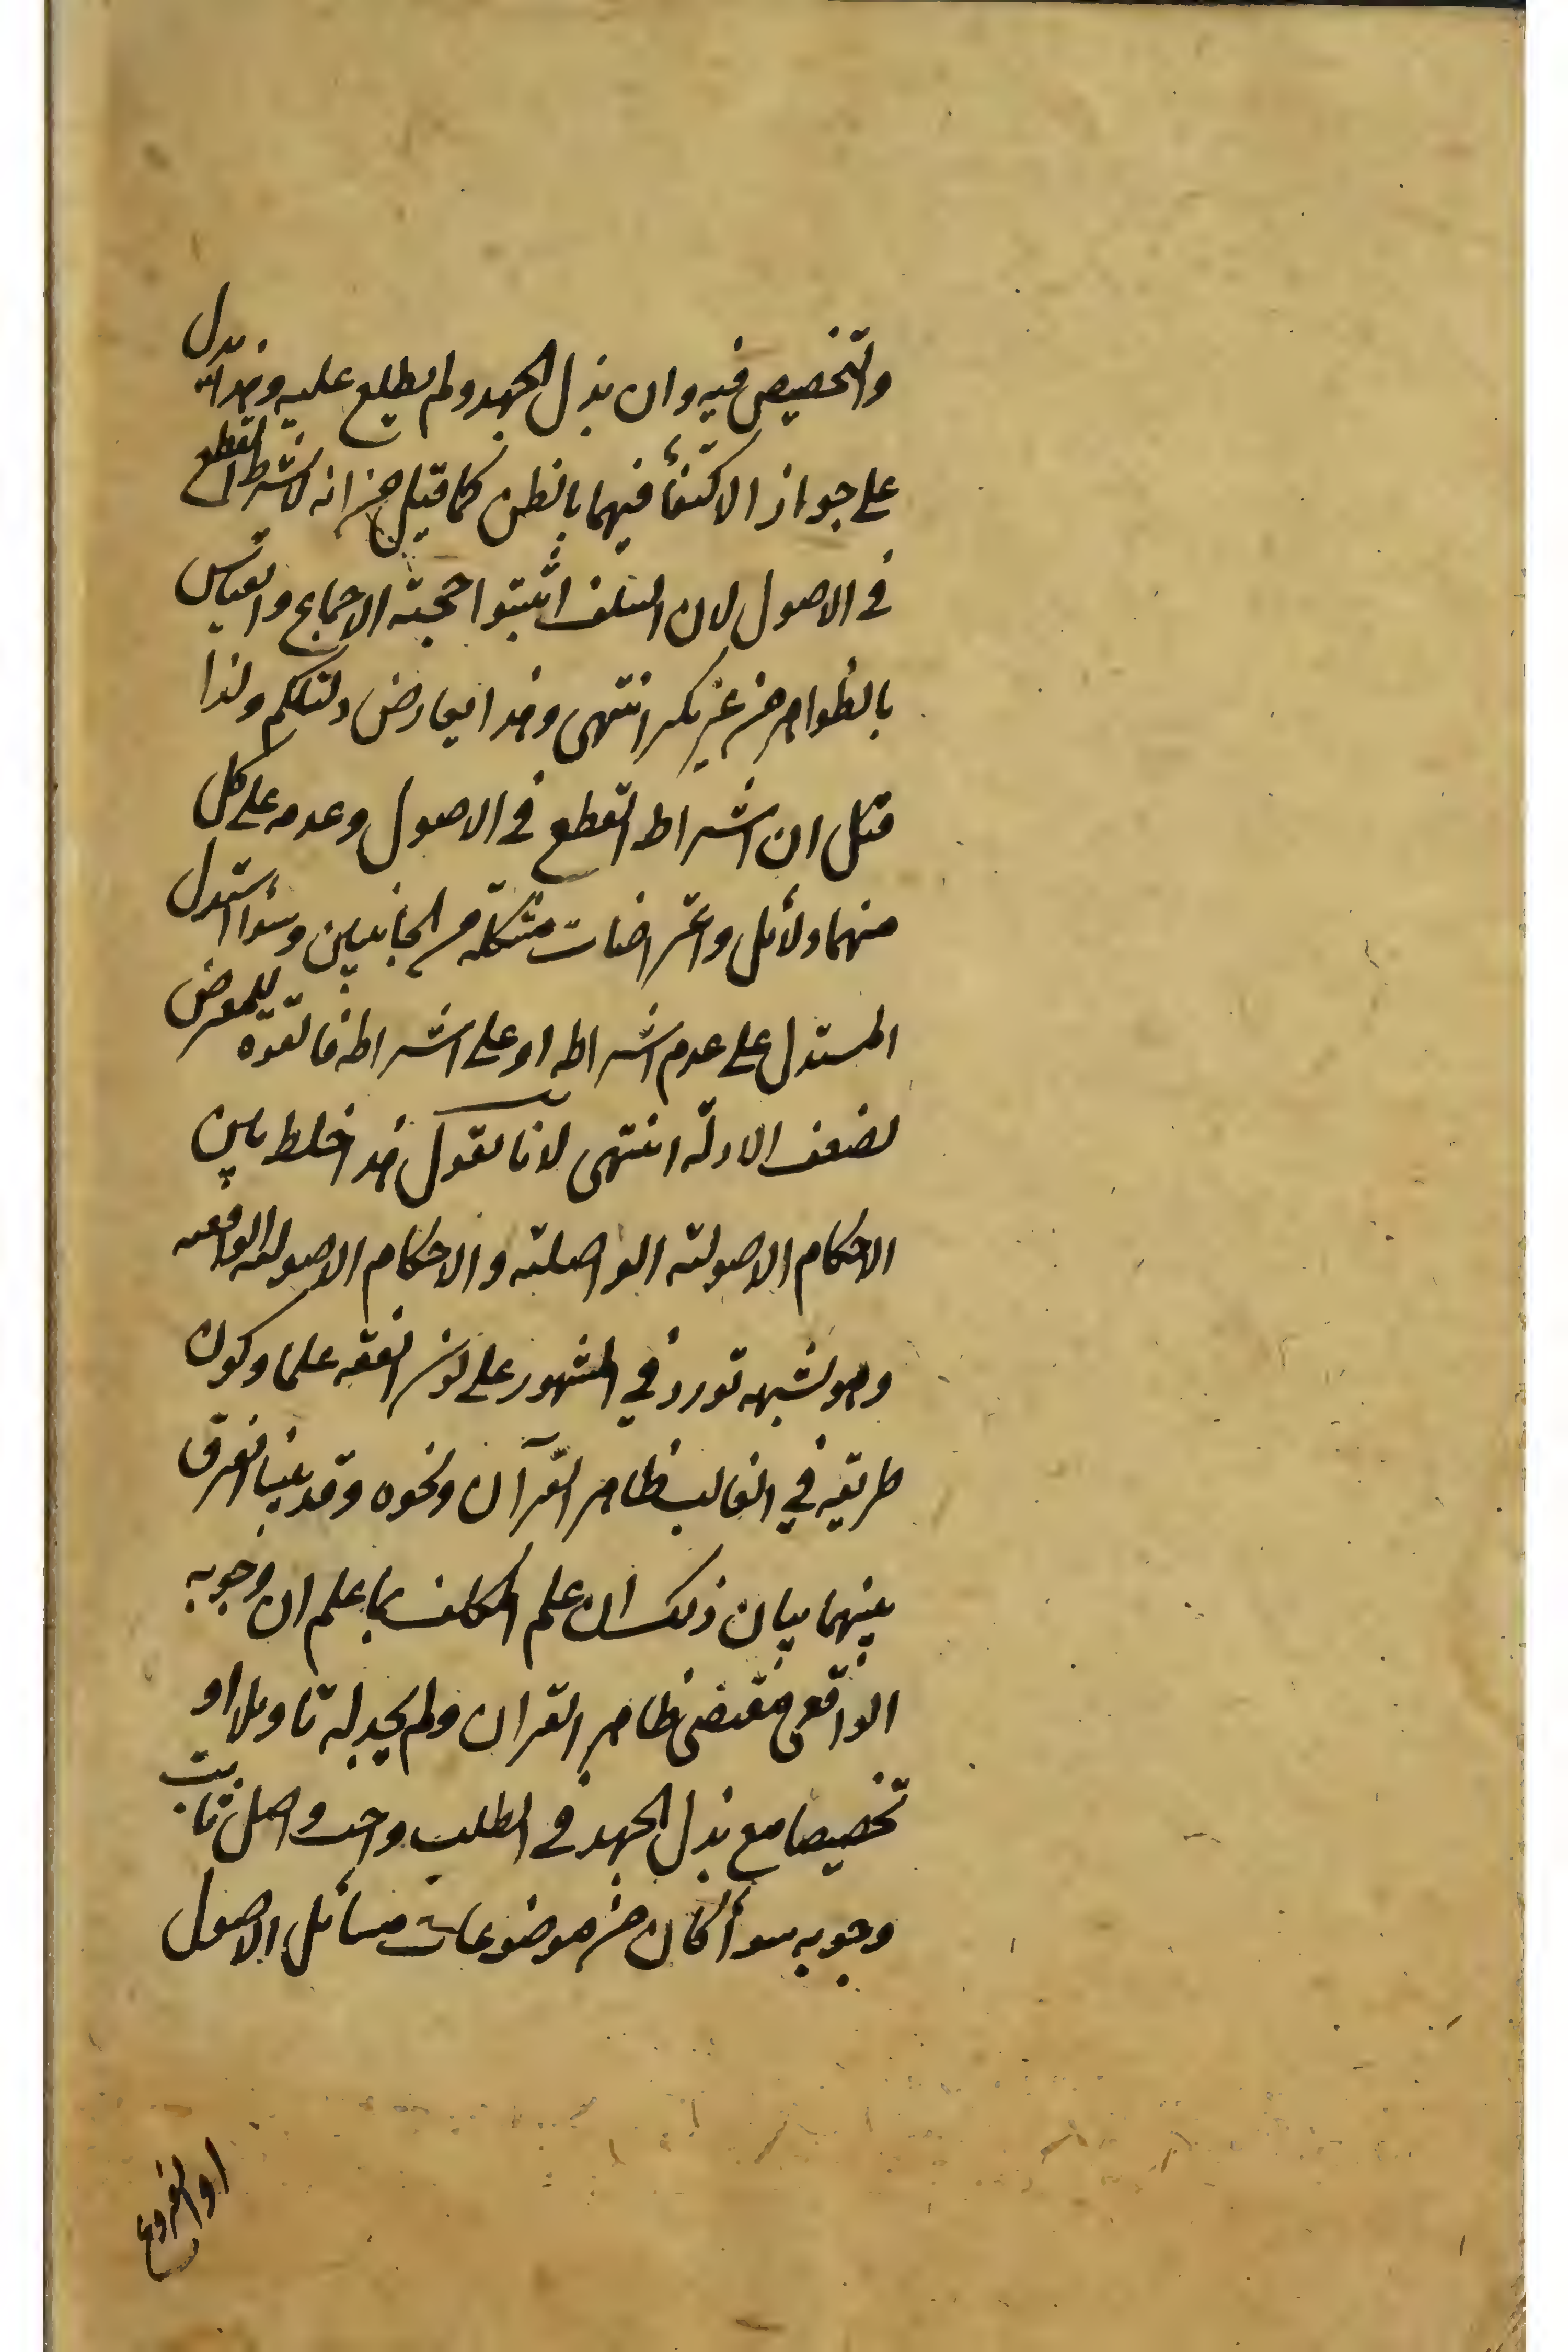 والتخصيص فيه وان بذل الجهد ولم يطلع عليه وهذا يدل
على جواز الاكتفأ فيهما بالظن كما قيل من انه لا يشترط القطع
في الاصول لان السلف اثبتوا حجية الاجماع والقياس
بالظواهر من غير نكير انتهى وهذا يعارض دليلكم ولذا
قيل ان اشتراط القطع في الاصول وعدمه على كل
منهما دلائل واعتراضات مشكلة من الجانبين وسوأ استدل
المستدل على عدم اشتراطه او على اشتراطه فالقوة للمعترض
لضعف الادلة انتهى لانا نقول هذا خلط بين
الاحكام الاصولية الواصلية والاحكام الاصولية الواقعية
وهو شبهة تورد في المشهور على كون الفقه علما وكون
طريقه في الغالب ظاهر القرآن ونحوه وقد بينا الفرق
بينهما بيان ذلك ان علم المكلف بما علم ان وجوبه
الواقعي مقتضى ظاهر القران ولم يجد له تاويلا او
تخصيصا مع بذل الجهد في الطلب واجب واصلي ثابت
وجوبه سوأ كان من موضوعات مسائل الاصول
او الفروع